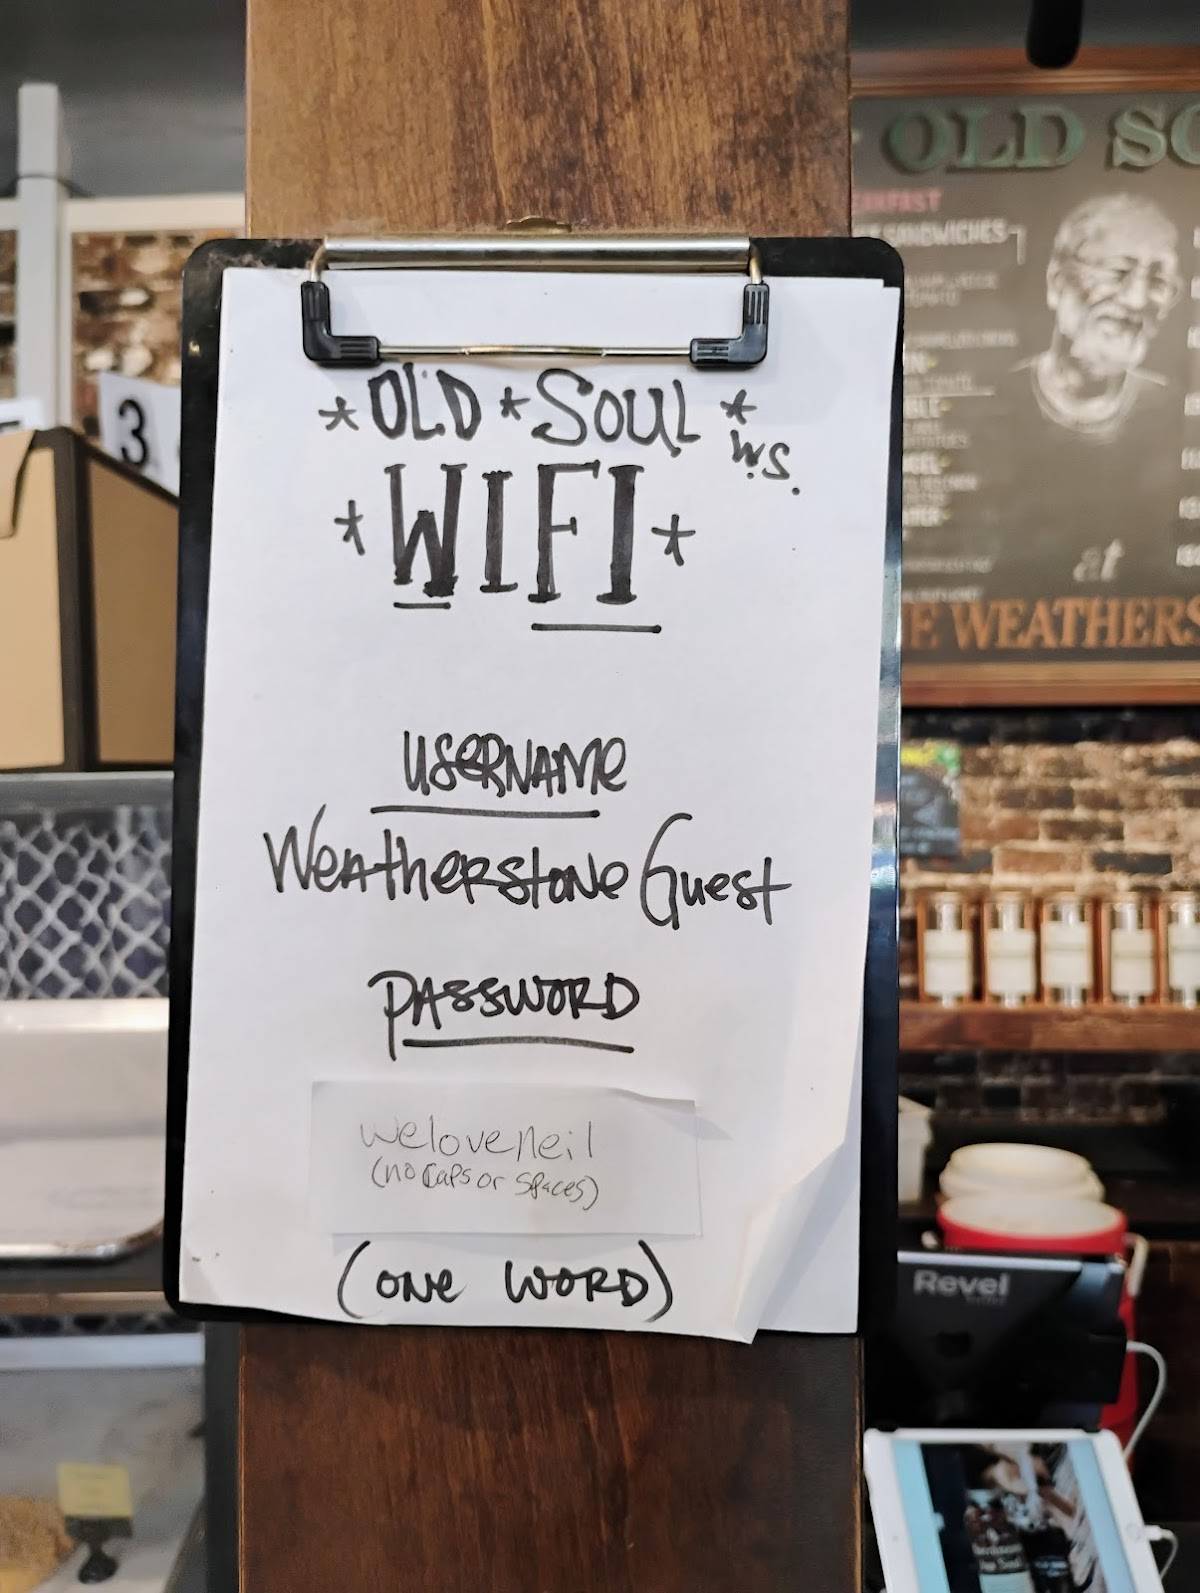 * OLD * SOUL *
W.S.
* WIFI *
USERNAME
Weatherstone Guest
PASSWORD
weloveneil
(no caps or spaces)
(ONE WORD)
3
OLD SO
SANDWICHES
at
E WEATHERS
Revel